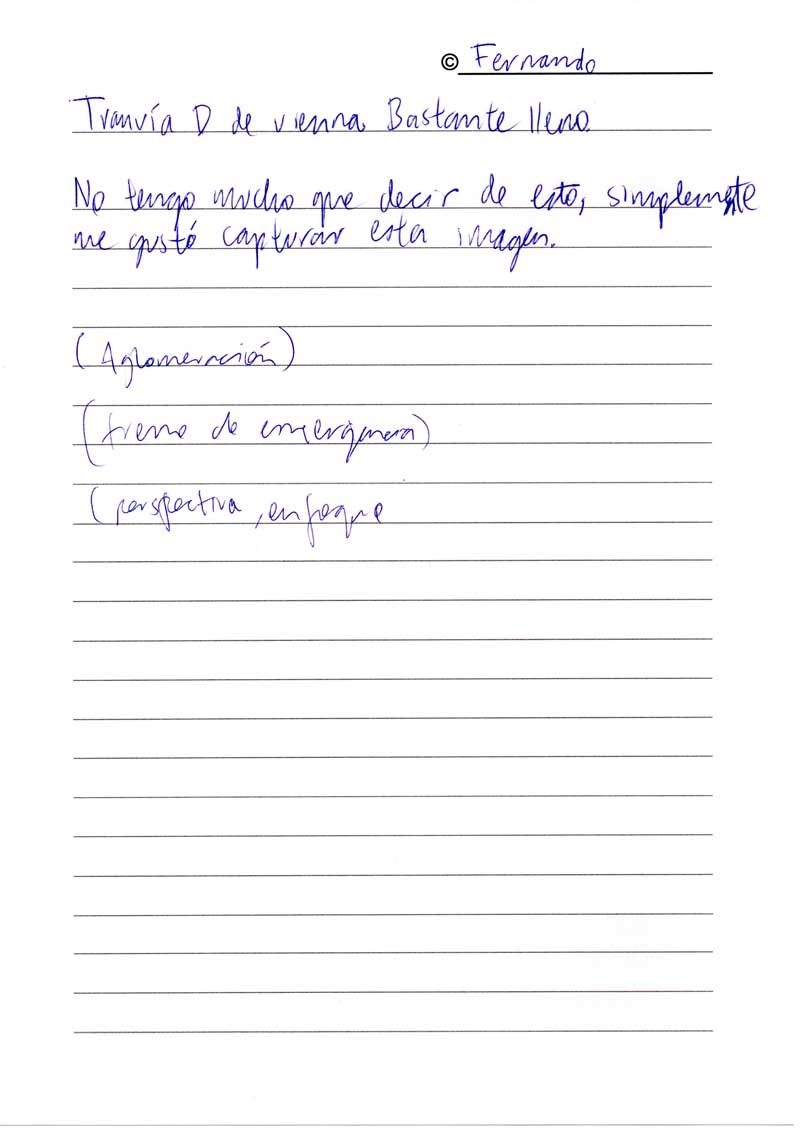 © Fernando
Tranvía D de vienna. Bastante lleno.
No tengo mucho que decir de esto, simplemente
me gustó capturar esta imagen.
(Aglomeración)
(freno de emergencia)
(perspectiva, enfoque